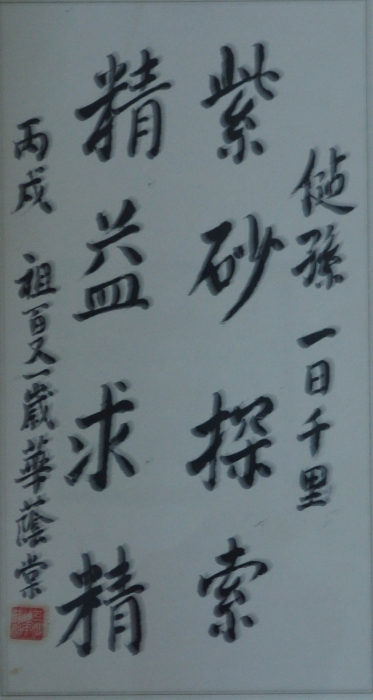 健孫 一日千里
紫砂探索
精益求精
丙戌 祖百又一歲華蔭棠